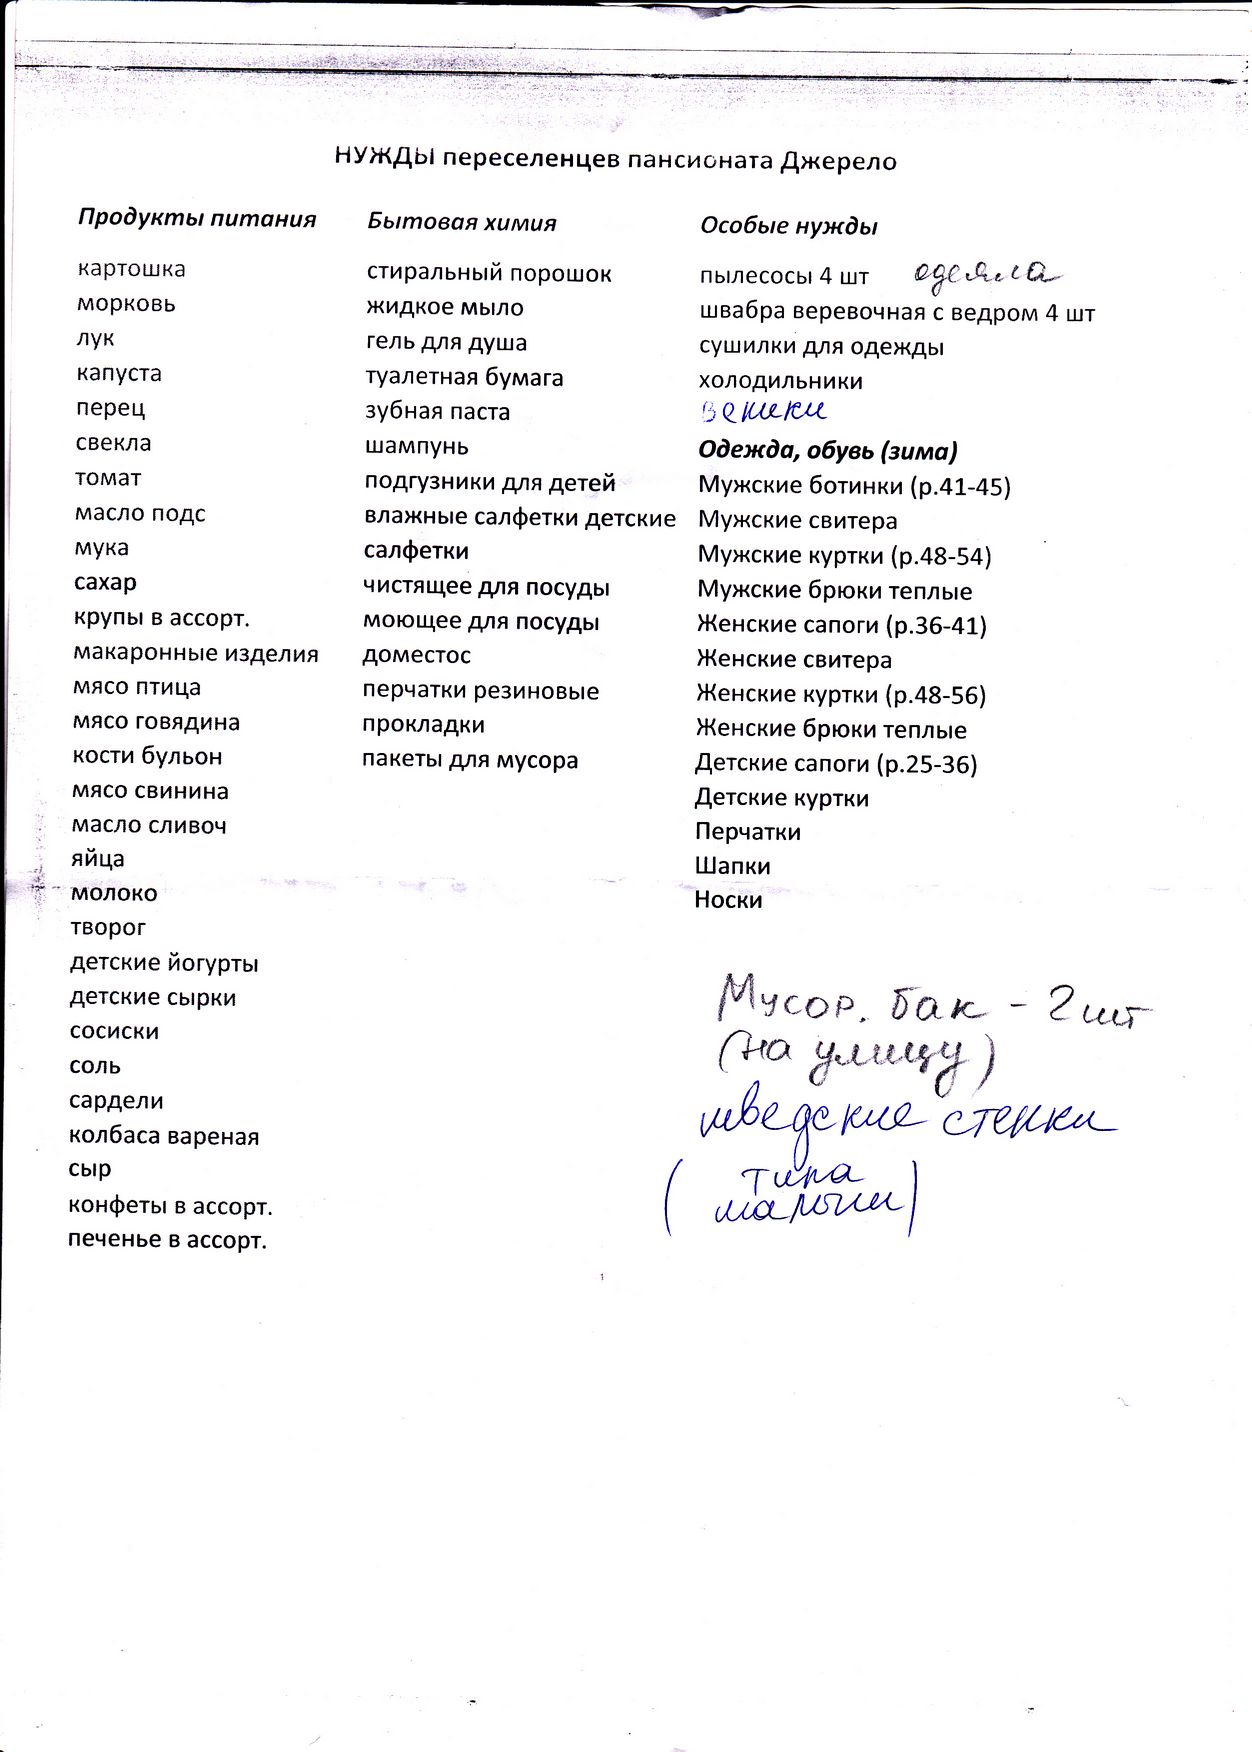 НУЖДЫ переселенцев пансионата Джерело
Продукты питания
картошка
морковь
лук
капуста
перец
свекла
томат
масло подс
мука
сахар
крупы в ассорт.
макаронные изделия
мясо птица
мясо говядина
кости бульон
мясо свинина
масло сливоч
яйца
молоко
творог
детские йогурты
детские сырки
сосиски
соль
сардели
колбаса вареная
сыр
конфеты в ассорт.
печенье в ассорт.
Бытовая химия
стиральный порошок
жидкое мыло
гель для душа
туалетная бумага
зубная паста
шампунь
подгузники для детей
влажные салфетки детские
салфетки
чистящее для посуды
моющее для посуды
доместос
перчатки резиновые
прокладки
пакеты для мусора
Особые нужды
пылесосы 4 шт одеяла
швабра веревочная с ведром 4 шт
сушилки для одежды
холодильники
веники
Одежда, обувь (зима)
Мужские ботинки (р.41-45)
Мужские свитера
Мужские куртки (р.48-54)
Мужские брюки теплые
Женские сапоги (р.36-41)
Женские свитера
Женские куртки (р.48-56)
Женские брюки теплые
Детские сапоги (р.25-36)
Детские куртки
Перчатки
Шапки
Носки
Мусор. бак - 2 шт
(на улицу)
шведские стенки
(типа
малыш)